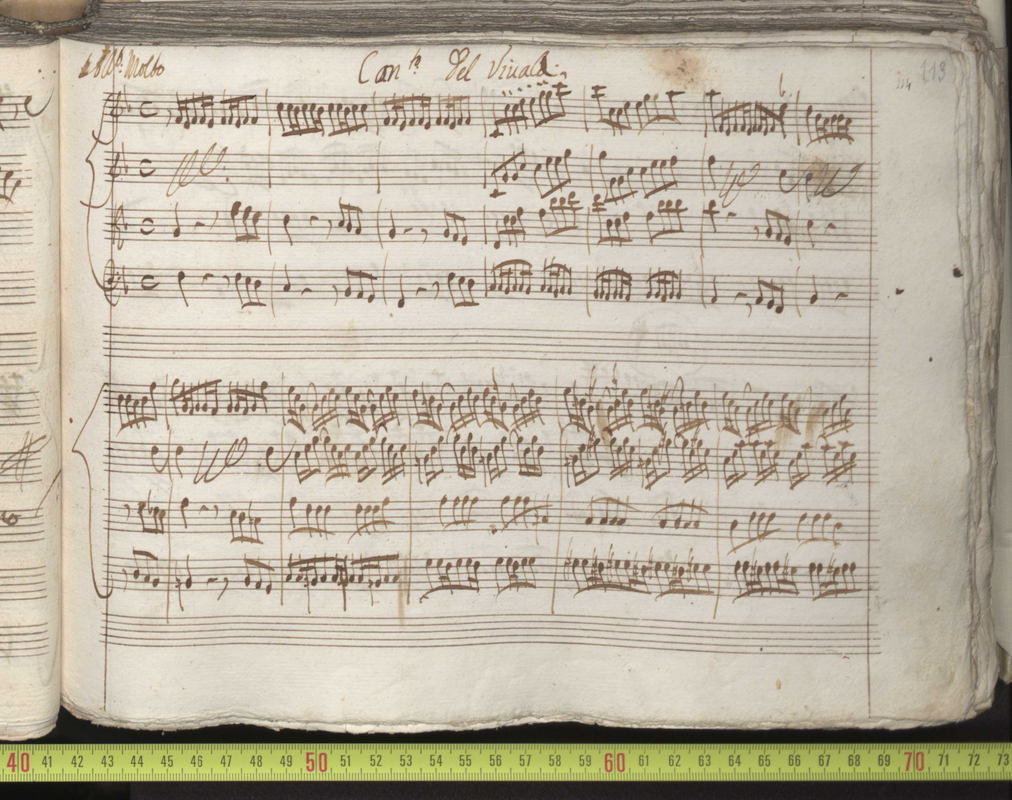 All.º Molto
Con.to Del Viualdi
113
40 41 42 43 44 45 46 47 48 49 50 51 52 53 54 55 56 57 58 59 60 61 62 63 64 65 66 67 68 69 70 71 72 73